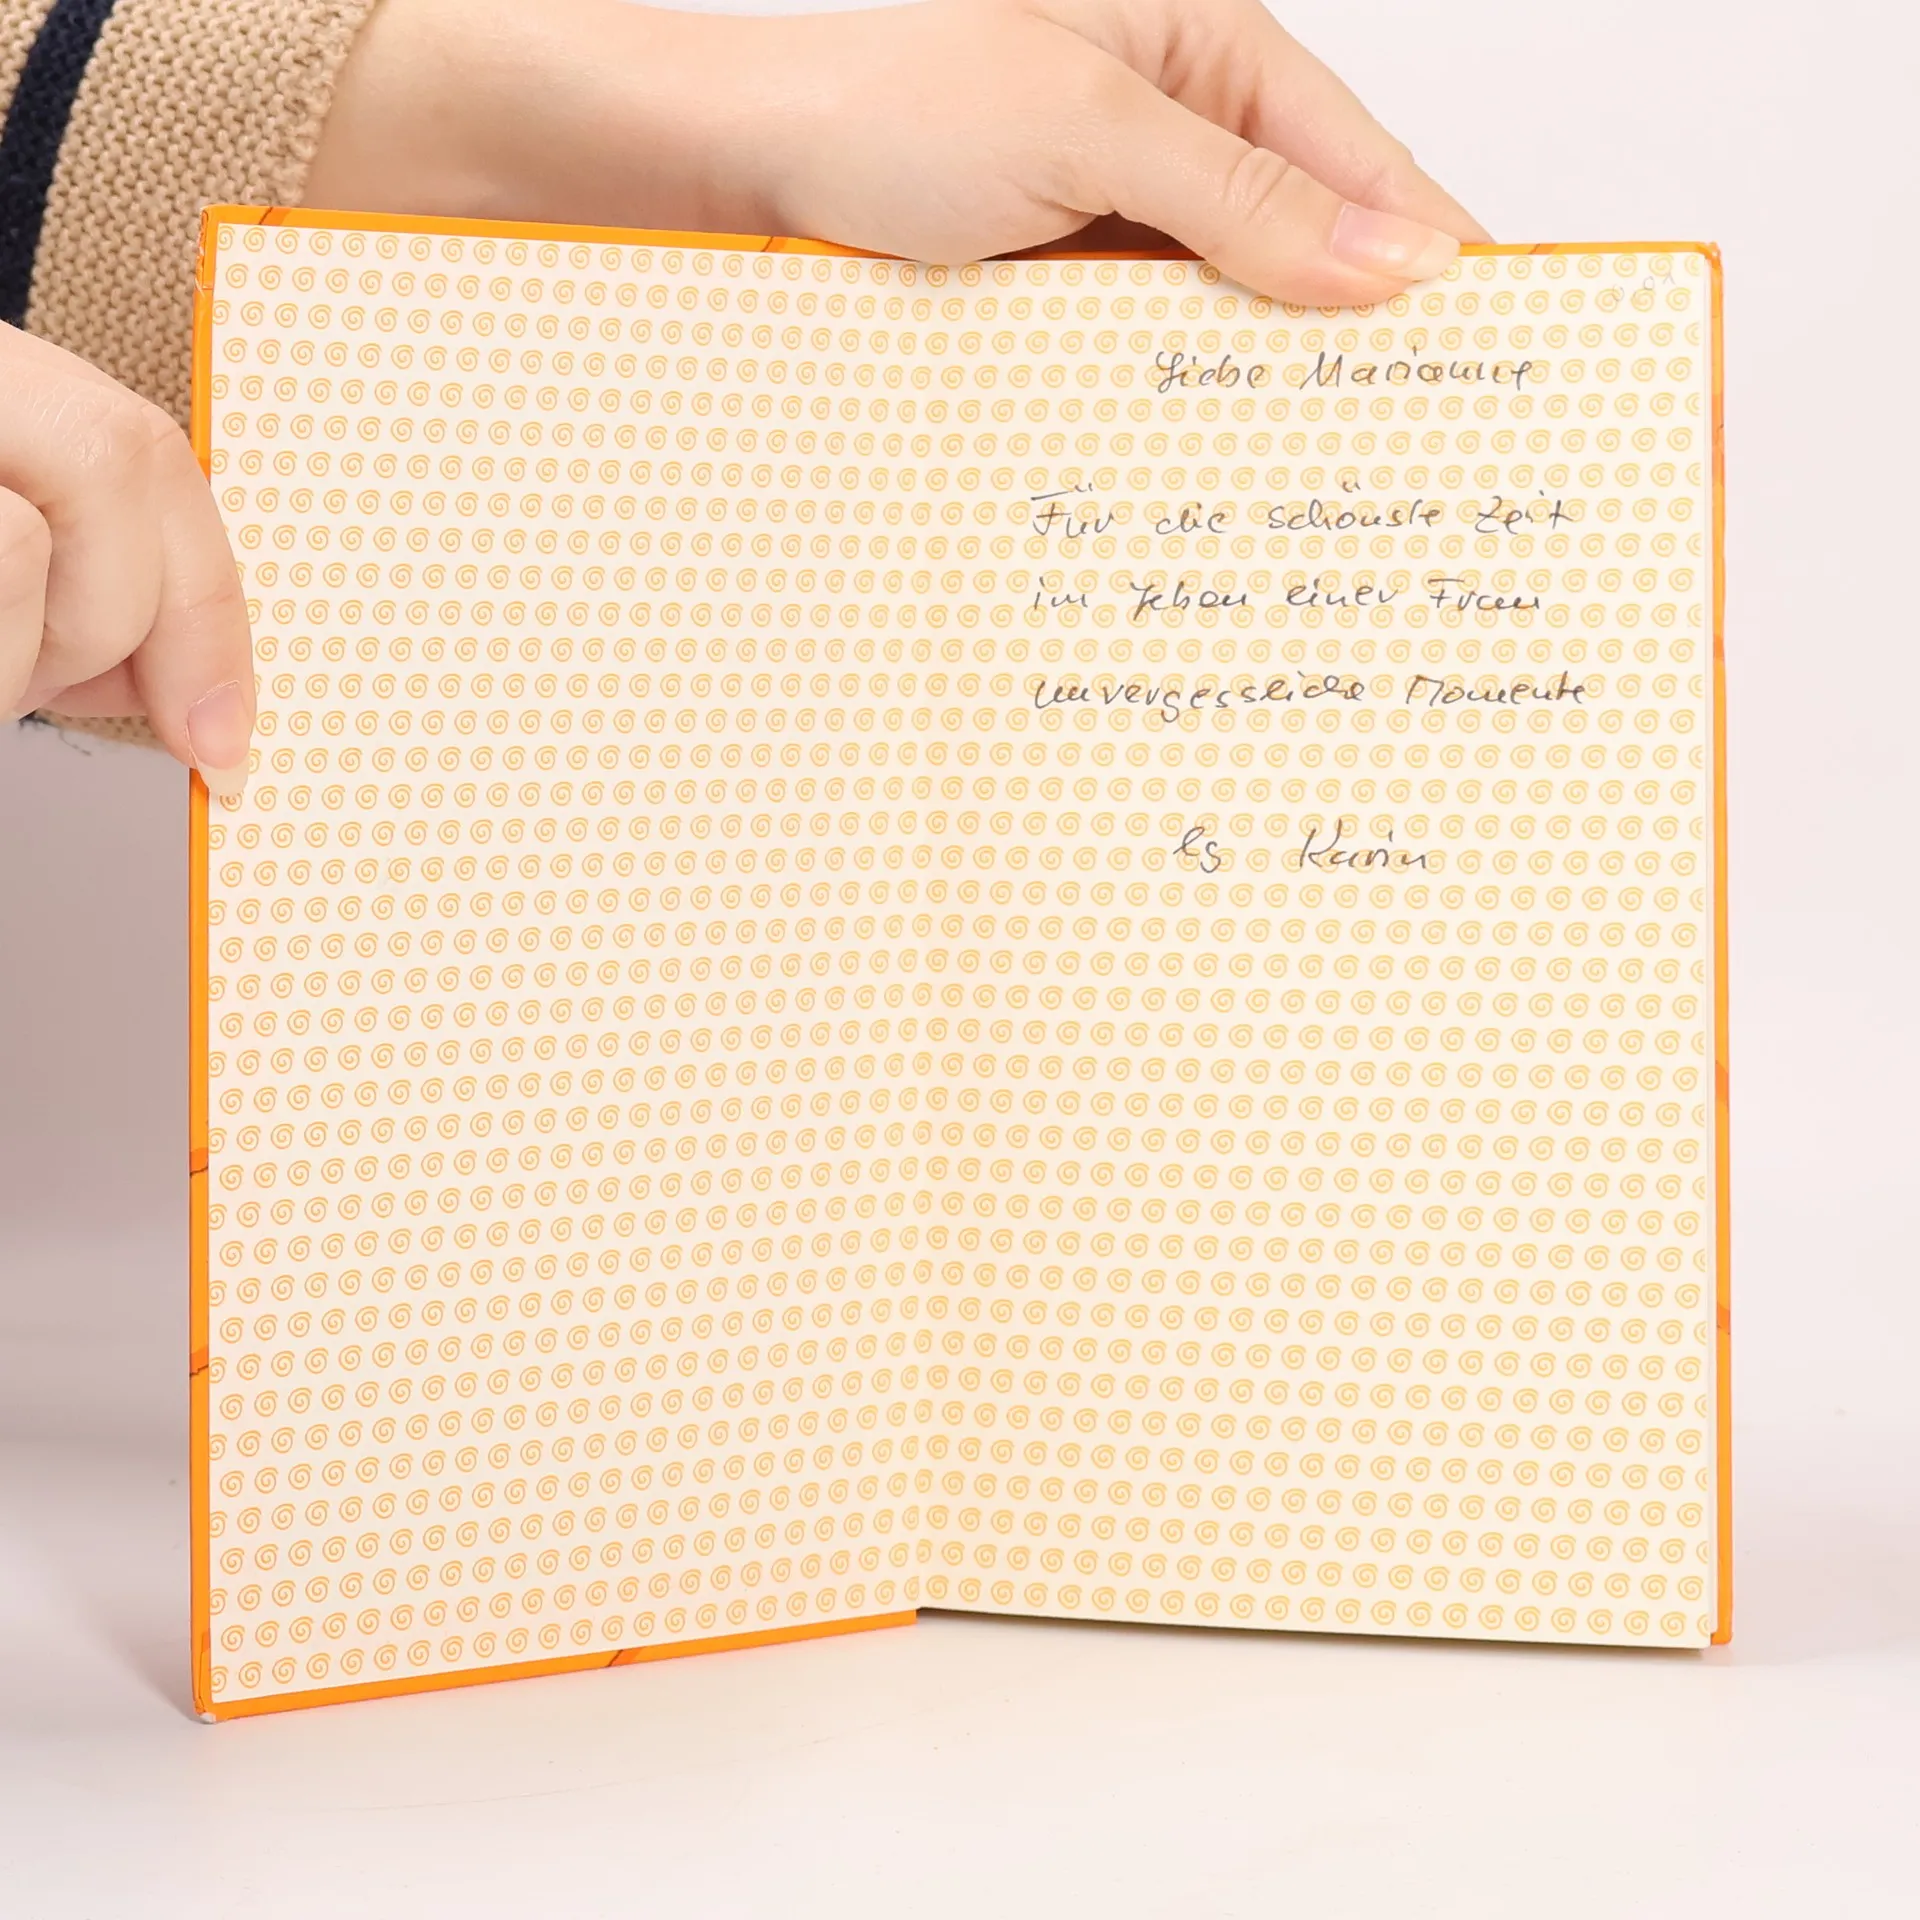 Liebe Marianne
Für die schönste Zeit
im Leben einer Frau
unvergessliche Momente
Karin